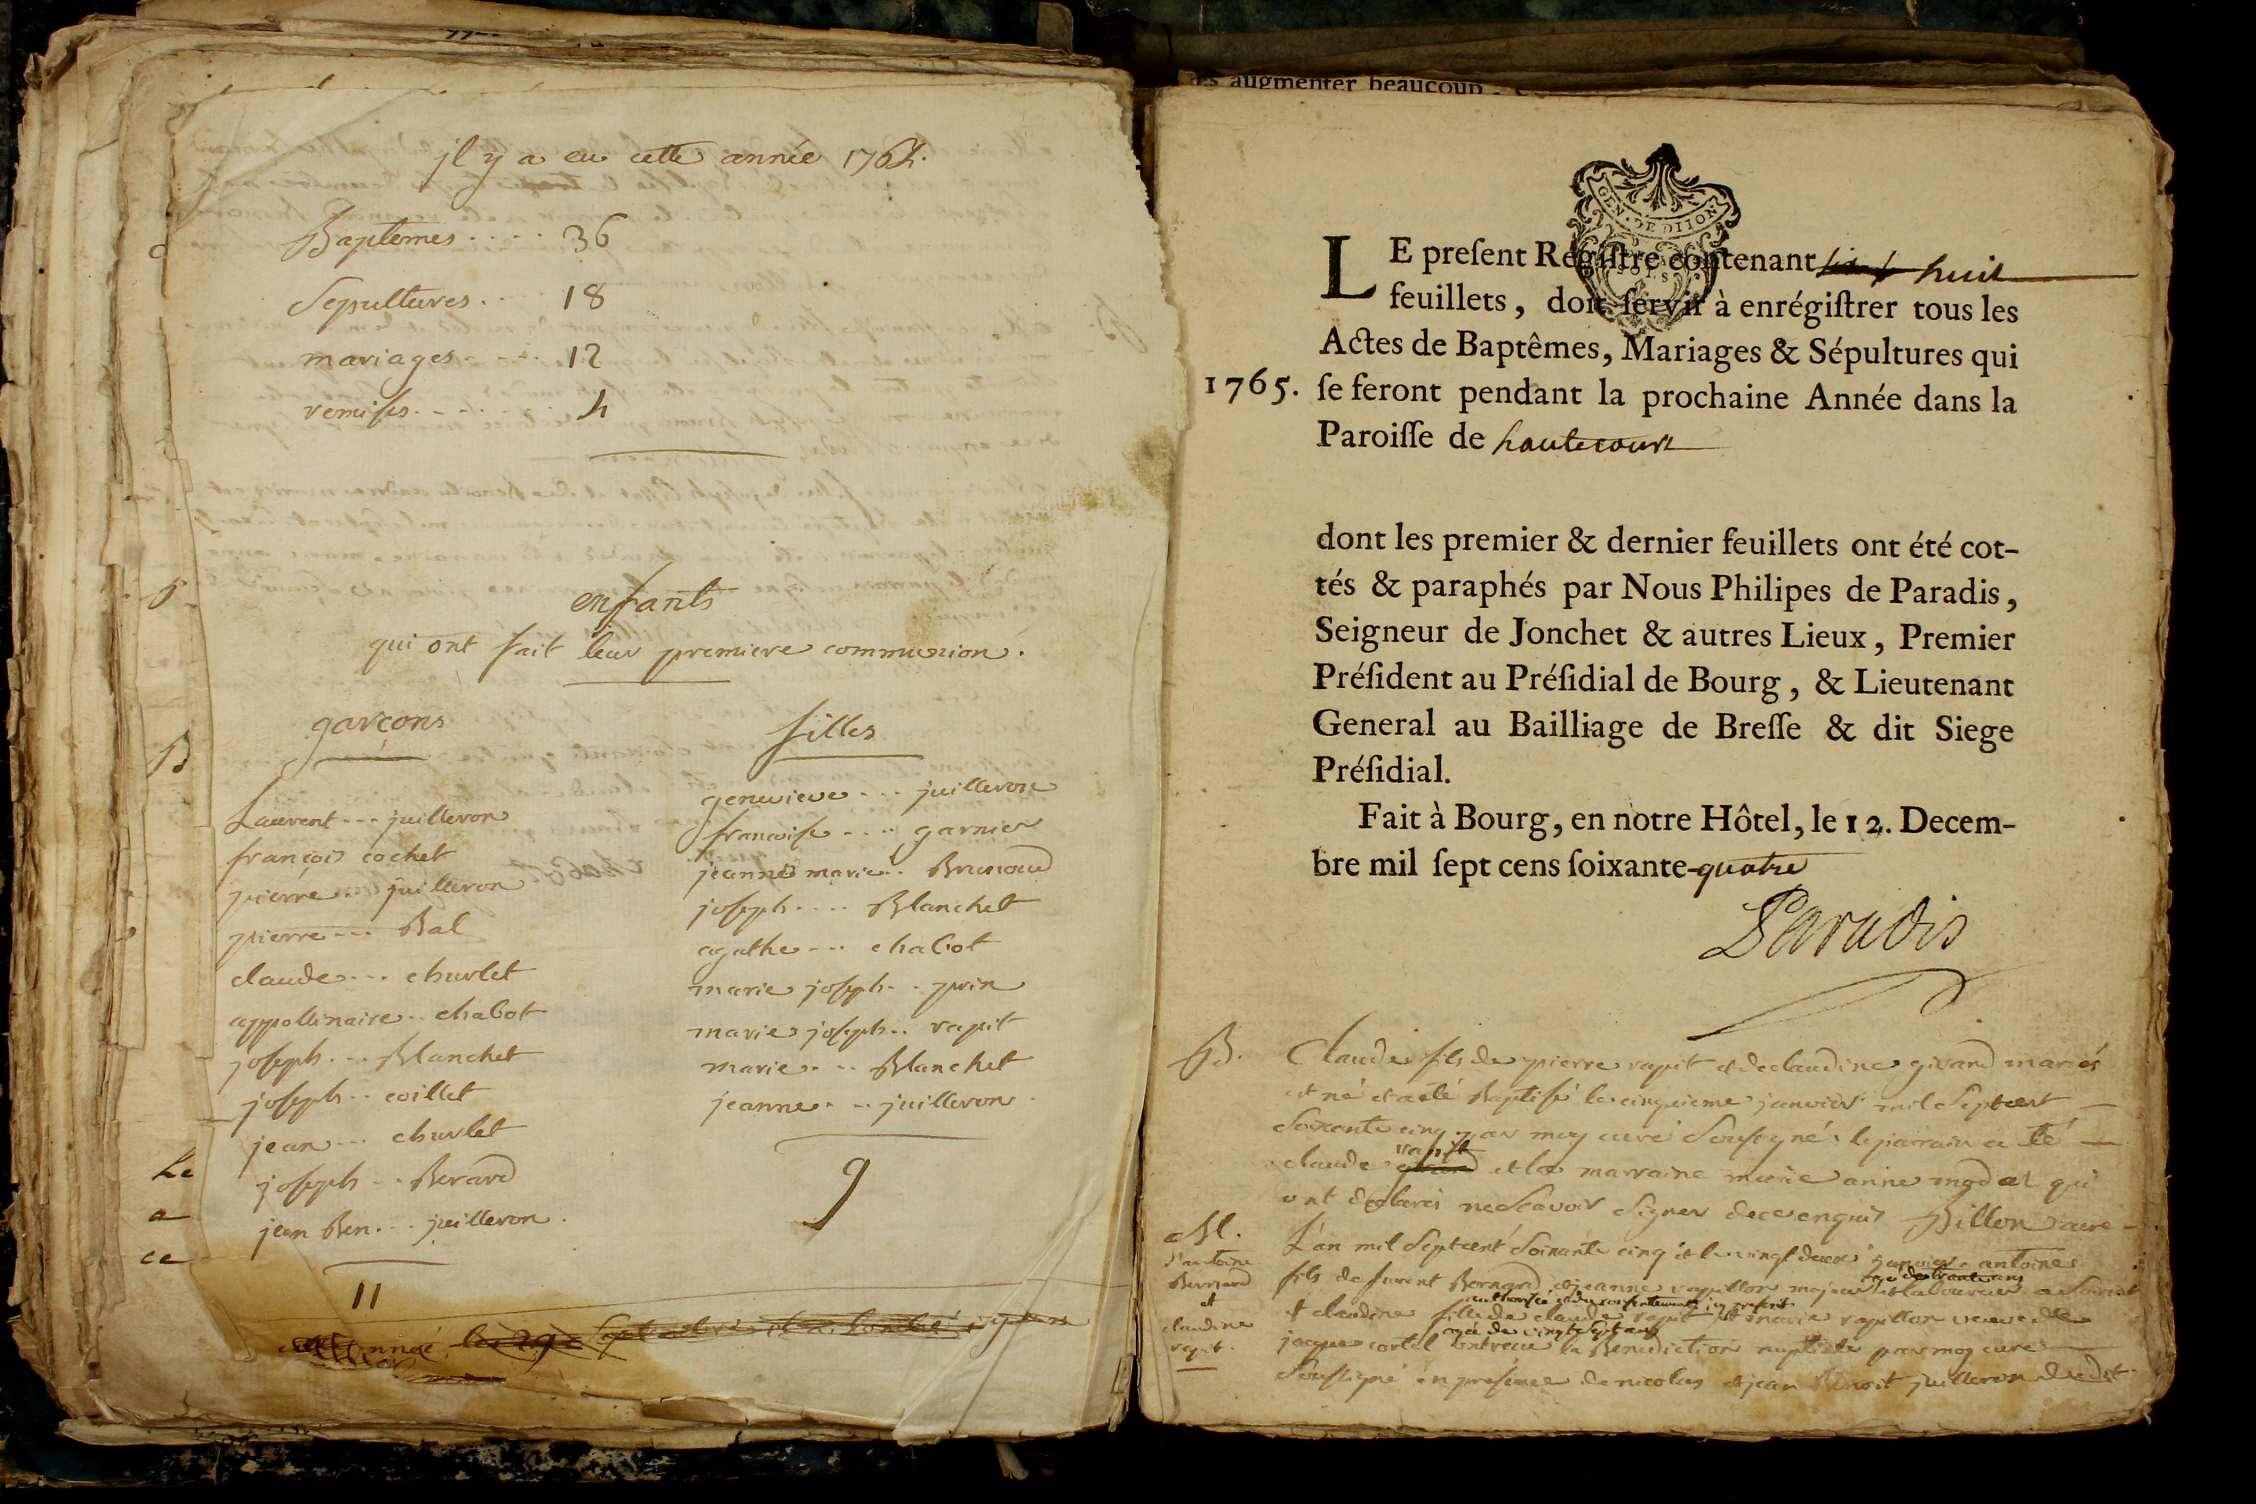 jl y a eu cette année 1764.
Baptemes.... 36
Sepultures.... 18
mariages.... 12
remises....... 4
enfants
qui ont fait leur premiere communion.
garçons
Laurent... juilleron
françois cochet
pierre.. juilleron
pierre... Bal
claude... churlet
appollinaire.. chabot
joseph... Blanchet
joseph.. coillet
jean... churlet
joseph... Berard
jean Ben... juilleron.
11
filles
genevieve... juilleron
francoise.... garnier
jeanne marie.. Brunoud
joseph.... Blanchet
agathe... chabot
marie joseph.. prin
marie joseph.. rapit
marie.... Blanchet
jeanne... juilleron
9
es augmenter beaucoup
GEN. DE DIJON
LE present Régistre contenant huit
feuillets, doit servir à enrégistrer tous les
Actes de Baptêmes, Mariages & Sépultures qui
1765. se feront pendant la prochaine Année dans la
Paroisse de hautecourt
dont les premier & dernier feuillets ont été cot-
tés & paraphés par Nous Philipes de Paradis,
Seigneur de Jonchet & autres Lieux, Premier
Président au Présidial de Bourg, & Lieutenant
General au Bailliage de Bresse & dit Siege
Présidial.
Fait à Bourg, en notre Hôtel, le 12. Decem-
bre mil sept cens soixante-quatre
Paradis
B. Claude fils de pierre rapit et de claudine girard mariés
est né et a eté Baptisé le cinquieme janvier mil sept cent
soixante cinq par moy curé soussigné. le parrain a eté
claude rapit et la marraine marie anne qui
ont declarés ne scavoir signer de ce enquis Billon curé
M.
antoine
Bernard
et
claudine
rapit.
L'an mil sept cent soixante cinq et le vingt deux janvier antoine
fils de furent Bernard et jeanne rapillon majeur agé de trente ans laboureur
et claudine fille de claude rapit et marie rapillon veuve de
jacque cortel agée de vingt sept ans ont recu la Benediction nuptiale par moy curé
soussigné en presence de nicolas et jean Benoit juilleron dudit